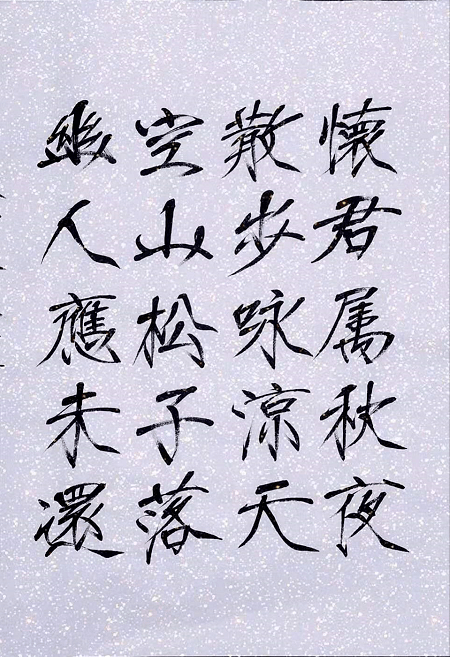 懷君属秋夜
散步咏涼天
空山松子落
幽人應未還